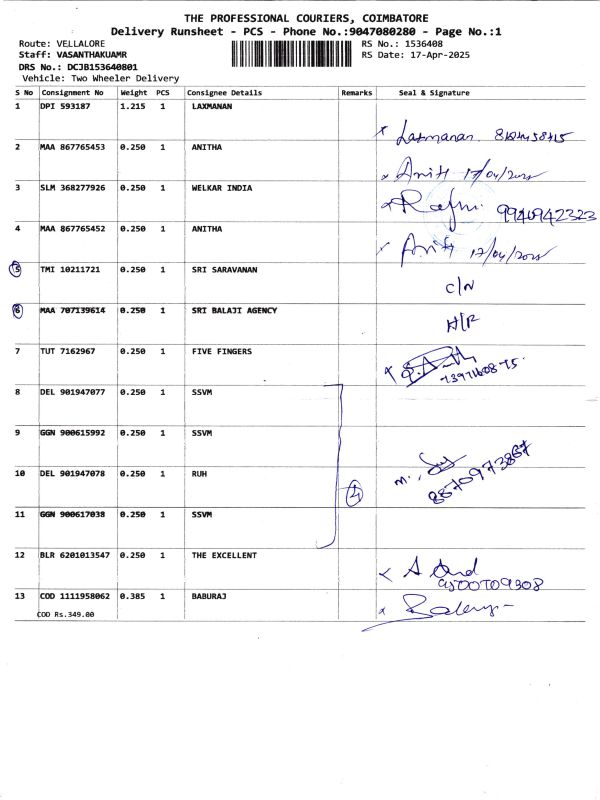 THE PROFESSIONAL COURIERS, COIMBATORE
Delivery Runsheet - PCS - Phone No.:9047080280 - Page No.:1
Route: VELLALORE RS No.: 1536408
Staff: VASANTHAKUAMR RS Date: 17-Apr-2025
DRS No.: DCJB153640801
Vehicle: Two Wheeler Delivery
S No Consignment No Weight PCS Consignee Details Remarks Seal & Signature
1 DPI 593187 1.215 1 LAXMANAN
Laxmanan
2 MAA 867765453 0.250 1 ANITHA
Anith 17/04/2025
3 SLM 368277926 0.250 1 WELKAR INDIA
9940942323
4 MAA 867765452 0.250 1 ANITHA
Anith 17/04/2025
5 TMI 10211721 0.250 1 SRI SARAVANAN
C/N
6 MAA 707139614 0.250 1 SRI BALAJI AGENCY
H/F
7 TUT 7162967 0.250 1 FIVE FINGERS
8 DEL 901947077 0.250 1 SSVM
9 GGN 900615992 0.250 1 SSVM
10 DEL 901947078 0.250 1 RUH
4
8870973867
11 GGN 900617038 0.250 1 SSVM
12 BLR 6201013547 0.250 1 THE EXCELLENT
13 COD 1111958062 0.385 1 BABURAJ
COD Rs.349.00